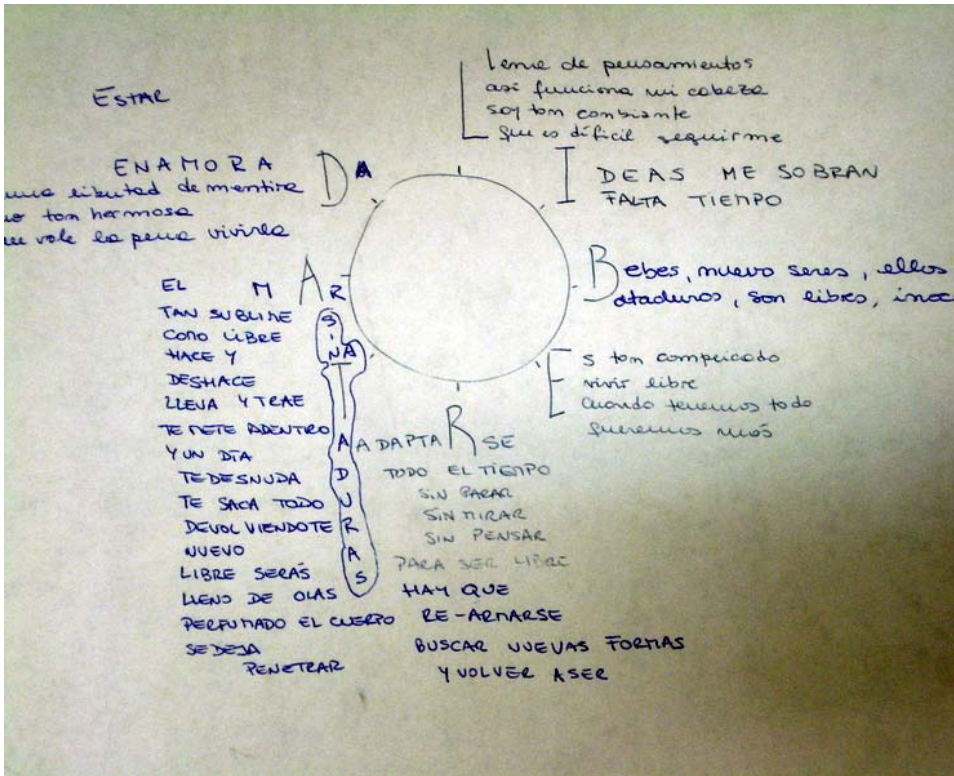 ESTAR
ENAMORA DA
una libertad de mentira
tan hermosa
vale la pena vivirla
L ema de pensamientos
asi funciona mi cabeza
soy tan cambiante
que es dificil seguirme
I DEAS ME SOBRAN
FALTA TIEMPO
Bebes, nuevo seres, ellos
ataduras, son libres, inoc
E s tan complicado
vivir libre
cuando tenemos todo
queremos más
ADAPTARSE
TODO EL TIEMPO
SIN PARAR
SIN MIRAR
SIN PENSAR
PARA SER LIBRE
HAY QUE
RE-ARMARSE
BUSCAR NUEVAS FORMAS
Y VOLVER A SER
EL MAR
TAN SUBLIME
COMO LIBRE
HACE Y
DESHACE
LLEVA Y TRAE
TE METE ADENTRO
Y UN DÍA
TE DESNUDA
TE SACA TODO
DEVOLVIENDOTE
NUEVO
LIBRE SERÁS
LLENO DE OLAS
PERFUMADO EL CUERPO
SE DEJA
PENETRAR
SIN ATADURAS